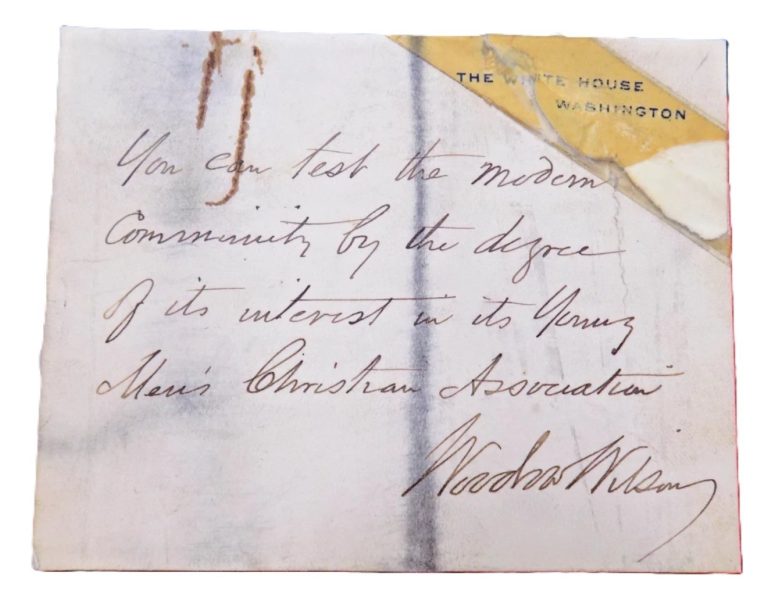 THE WHITE HOUSE
WASHINGTON
You can test the modern
Community by the degree
of its interest in its Young
Men's Christian Association
Woodrow Wilson